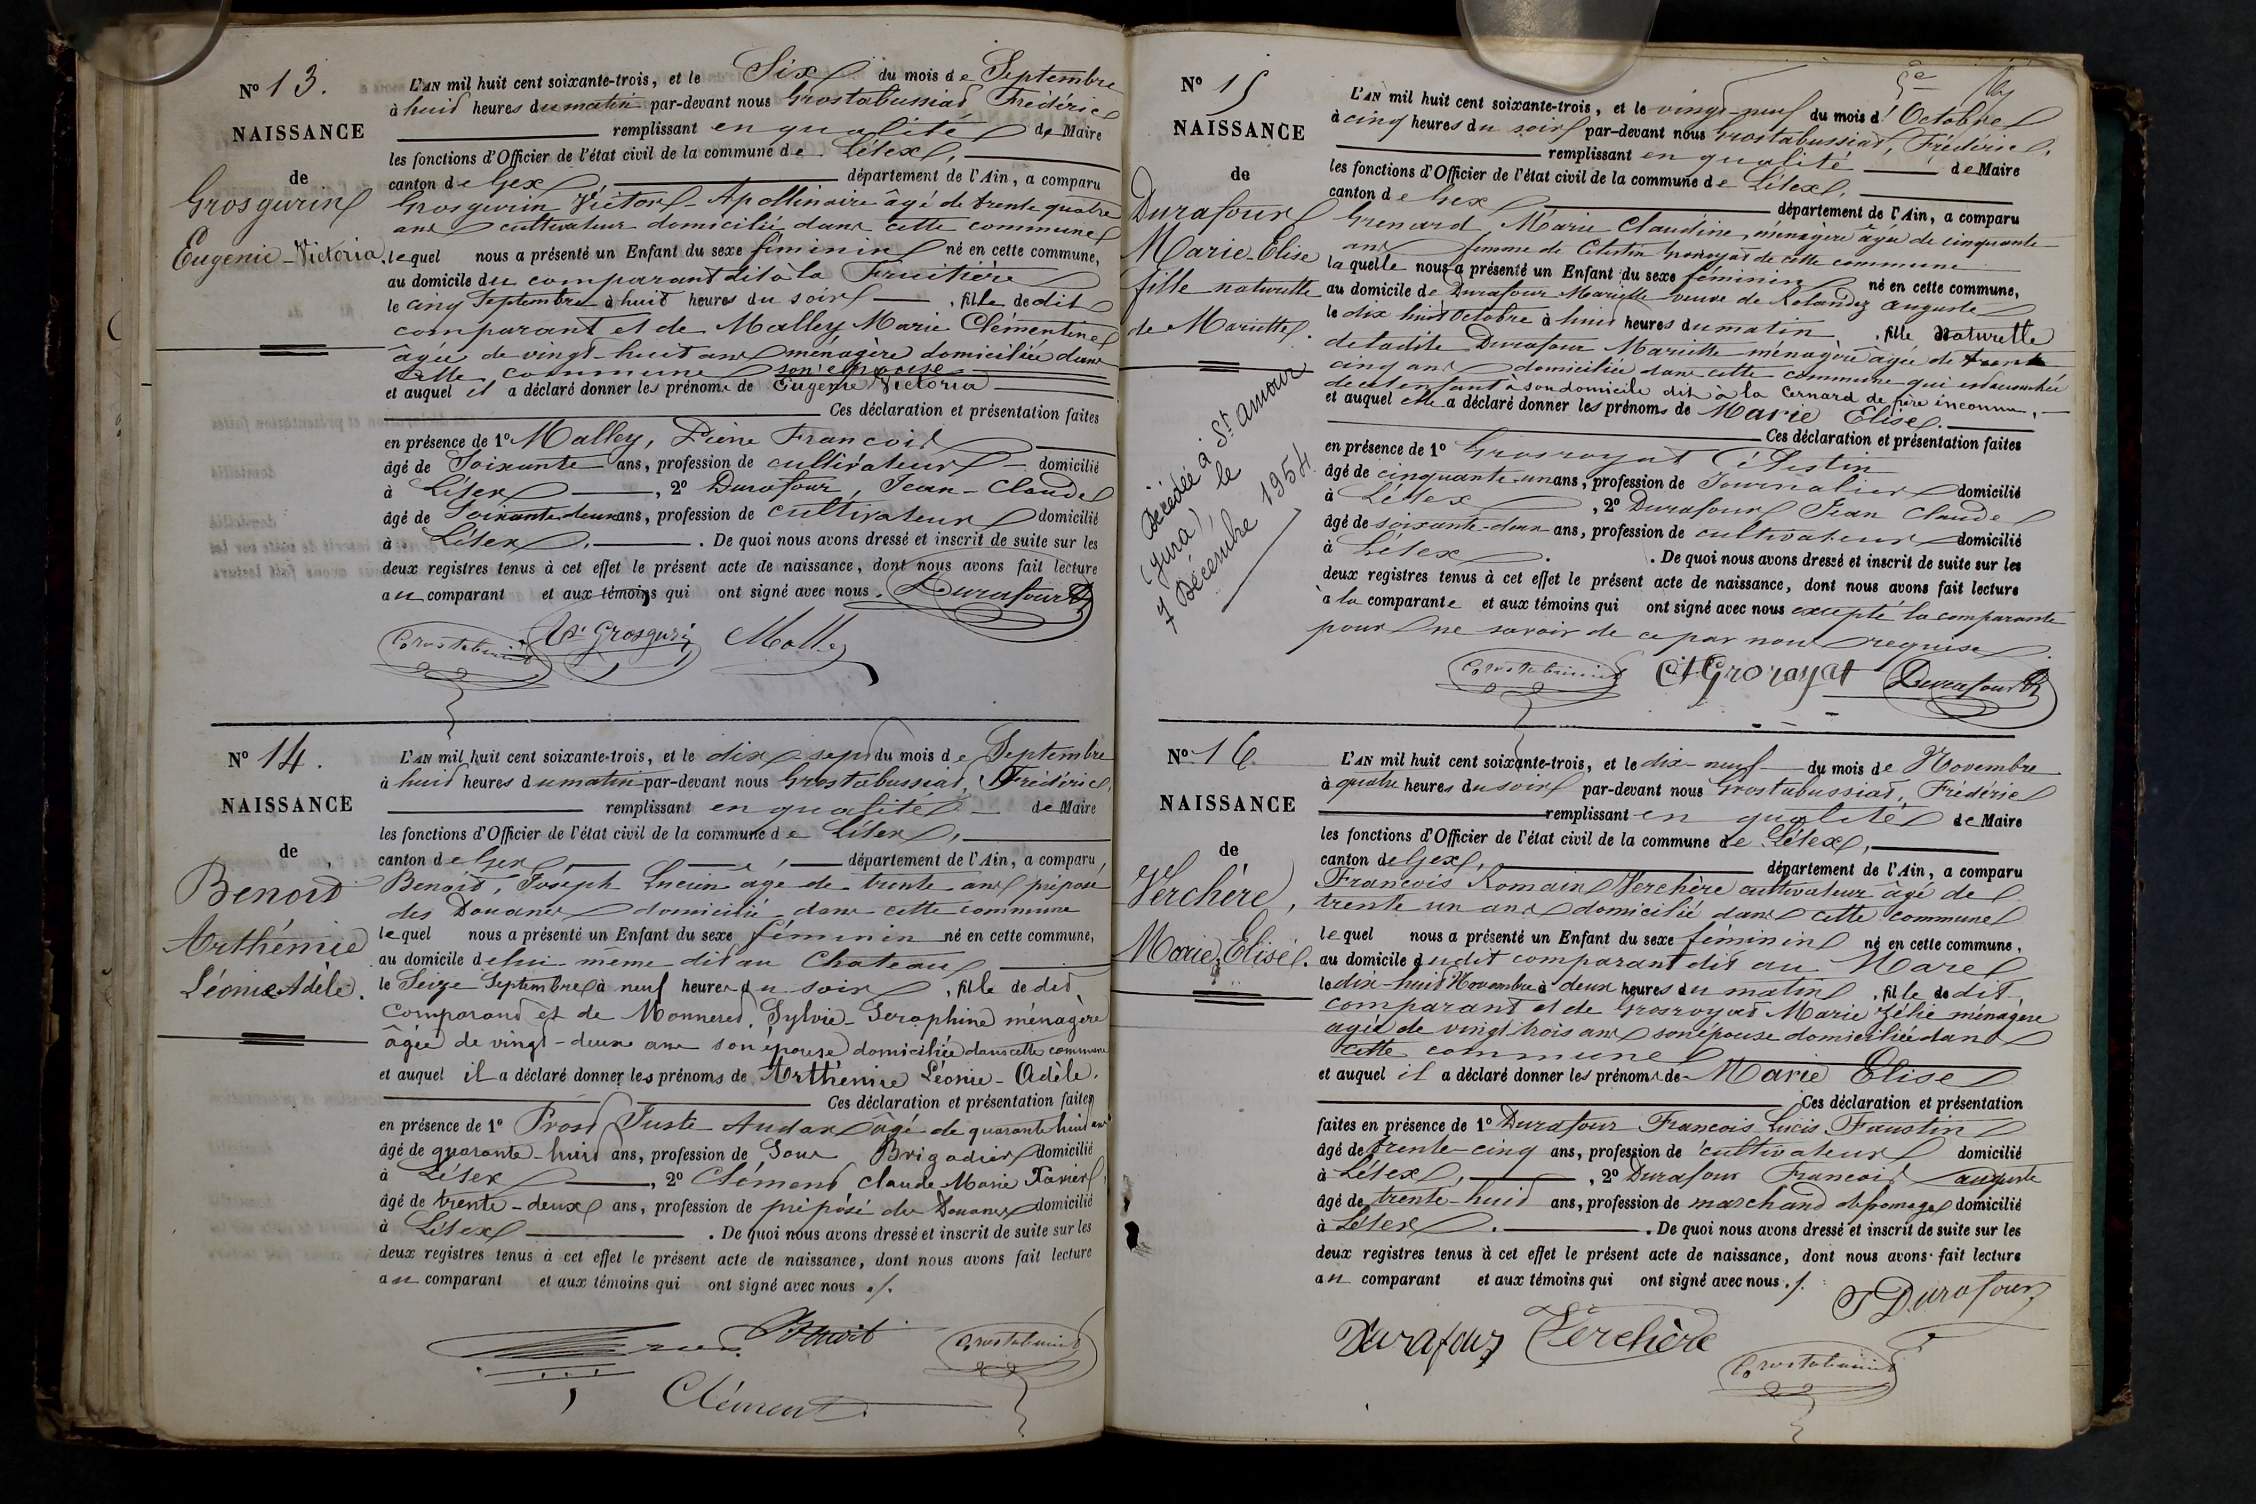 N° 13.
NAISSANCE
de
Grosgurin
Eugenie-Victoria.
L'AN mil huit cent soixante-trois, et le Six du mois de Septembre
à huit heures du matin par-devant nous Grostabussiat Frédéric
remplissant en qualité de Maire
les fonctions d'Officier de l'état civil de la commune de Lélex,
canton de Gex département de l'Ain, a comparu
Grosgurin Victor-Apollinaire âgé de trente quatre
ans cultivateur domicilié dans cette commune
lequel nous a présenté un Enfant du sexe féminin né en cette commune,
au domicile du comparant dit à la Fruitière
le cinq Septembre à huit heures du soir, fille de dit
comparant et de Malley Marie Clémentine
âgée de vingt-huit ans ménagère domiciliée dans
cette commune son épouse
et auquel il a déclaré donner les prénoms de Eugenie Victoria
Ces déclaration et présentation faites
en présence de 1° Malley, Pierre Francois
âgé de Soixante ans, profession de cultivateur domicilié
à Lélex, 2° Durafour, Jean-Claude
âgé de Soixante deux ans, profession de cultivateur domicilié
à Lélex. De quoi nous avons dressé et inscrit de suite sur les
deux registres tenus à cet effet le présent acte de naissance, dont nous avons fait lecture
au comparant et aux témoins qui ont signé avec nous. Durafour
Grostabussiat Vr Grosgurin Malley
N° 14.
NAISSANCE
de
Benoit
Arthémie
Léonie Adèle.
L'AN mil huit cent soixante-trois, et le dix sept du mois de Septembre
à huit heures du matin par-devant nous Grostabussiat, Frédéric,
remplissant en qualité de Maire
les fonctions d'Officier de l'état civil de la commune de Lélex,
canton de Gex, département de l'Ain, a comparu
Benoit, Joseph Lucien âgé de trente ans préposé
des Douanes domicilié dans cette commune
lequel nous a présenté un Enfant du sexe féminin né en cette commune,
au domicile de lui-même dit au Chateau
le Seize Septembre à neuf heures du soir, fille de dit
comparant et de Monneret, Sylvie-Seraphine ménagère
âgée de vingt-deux ans son épouse domiciliée dans cette commune
et auquel il a déclaré donner les prénoms de Arthémie Léonie-Adèle.
Ces déclaration et présentation faites
en présence de 1° Prost Juste Andar âgé de quarante huit ans
âgé de quarante-huit ans, profession de Sous Brigadier domicilié
à Lélex, 2° Clément Claude Marie Xavier
âgé de trente-deux ans, profession de préposé des Douanes domicilié
à Lélex. De quoi nous avons dressé et inscrit de suite sur les
deux registres tenus à cet effet le présent acte de naissance, dont nous avons fait lecture
au comparant et aux témoins qui ont signé avec nous ./.
Benoit Grostabussiat
Clément
N° 15
NAISSANCE
de
Durafour
Marie-Elise
fille naturelle
de Mariette.
Décédée à St Amour
(Jura), le
7 Décembre 1954
L'AN mil huit cent soixante-trois, et le vingt-neuf du mois d'Octobre
à cinq heures du soir par-devant nous Grostabussiat, Frédéric,
remplissant en qualité de Maire
les fonctions d'Officier de l'état civil de la commune de Lélex,
canton de Gex département de l'Ain, a comparu
Grenard Marie Claudine, ménagère âgée de cinquante
ans femme de Célestin Grosroyat de cette commune
laquelle nous a présenté un Enfant du sexe féminin né en cette commune,
au domicile de Durafour Mariette veuve de Rolandez Auguste
le dix huit Octobre à huit heures du matin, fille naturelle
de ladite Durafour Mariette ménagère âgée de trente
cinq ans domiciliée dans cette commune qui est accouchée
de cet enfant à son domicile dit à la Cernard de père inconnu,
et auquel elle a déclaré donner les prénoms de Marie Elise.
Ces déclaration et présentation faites
en présence de 1° Grosroyat Célestin
âgé de cinquante-un ans, profession de Journalier domicilié
à Lélex, 2° Durafour Jean Claude
âgé de soixante-deux ans, profession de cultivateur domicilié
à Lélex. De quoi nous avons dressé et inscrit de suite sur les
deux registres tenus à cet effet le présent acte de naissance, dont nous avons fait lecture
à la comparante et aux témoins qui ont signé avec nous excepté la comparante
pour ne savoir de ce par nous requise.
Grostabussiat Ct Groroyat Durafour
N° 16
NAISSANCE
de
Verchère,
Marie Elise.
L'AN mil huit cent soixante-trois, et le dix-neuf du mois de Novembre
à quatre heures du soir par-devant nous Grostabussiat, Frédéric
remplissant en qualité de Maire
les fonctions d'Officier de l'état civil de la commune de Lélex,
canton de Gex, département de l'Ain, a comparu
Francois Romain Verchère cultivateur âgé de
trente un ans domicilié dans cette commune
lequel nous a présenté un Enfant du sexe féminin né en cette commune,
au domicile dudit comparant dit au Marel
le dix-huit Novembre à deux heures du matin, fille de dit
comparant et de Grosroyat Marie Zélie ménagère
agée de vingt trois ans son épouse domiciliée dans
cette commune
et auquel il a déclaré donner les prénoms de Marie Elise
Ces déclaration et présentation
faites en présence de 1° Durafour Francois Lucis Faustin
âgé de trente-cinq ans, profession de cultivateur domicilié
à Lélex, 2° Durafour Francois auguste
âgé de trente-huit ans, profession de marchand de fromages domicilié
à Lélex. De quoi nous avons dressé et inscrit de suite sur les
deux registres tenus à cet effet le présent acte de naissance, dont nous avons fait lecture
au comparant et aux témoins qui ont signé avec nous ./. Durafour
Durafour Verchère
Grostabussiat